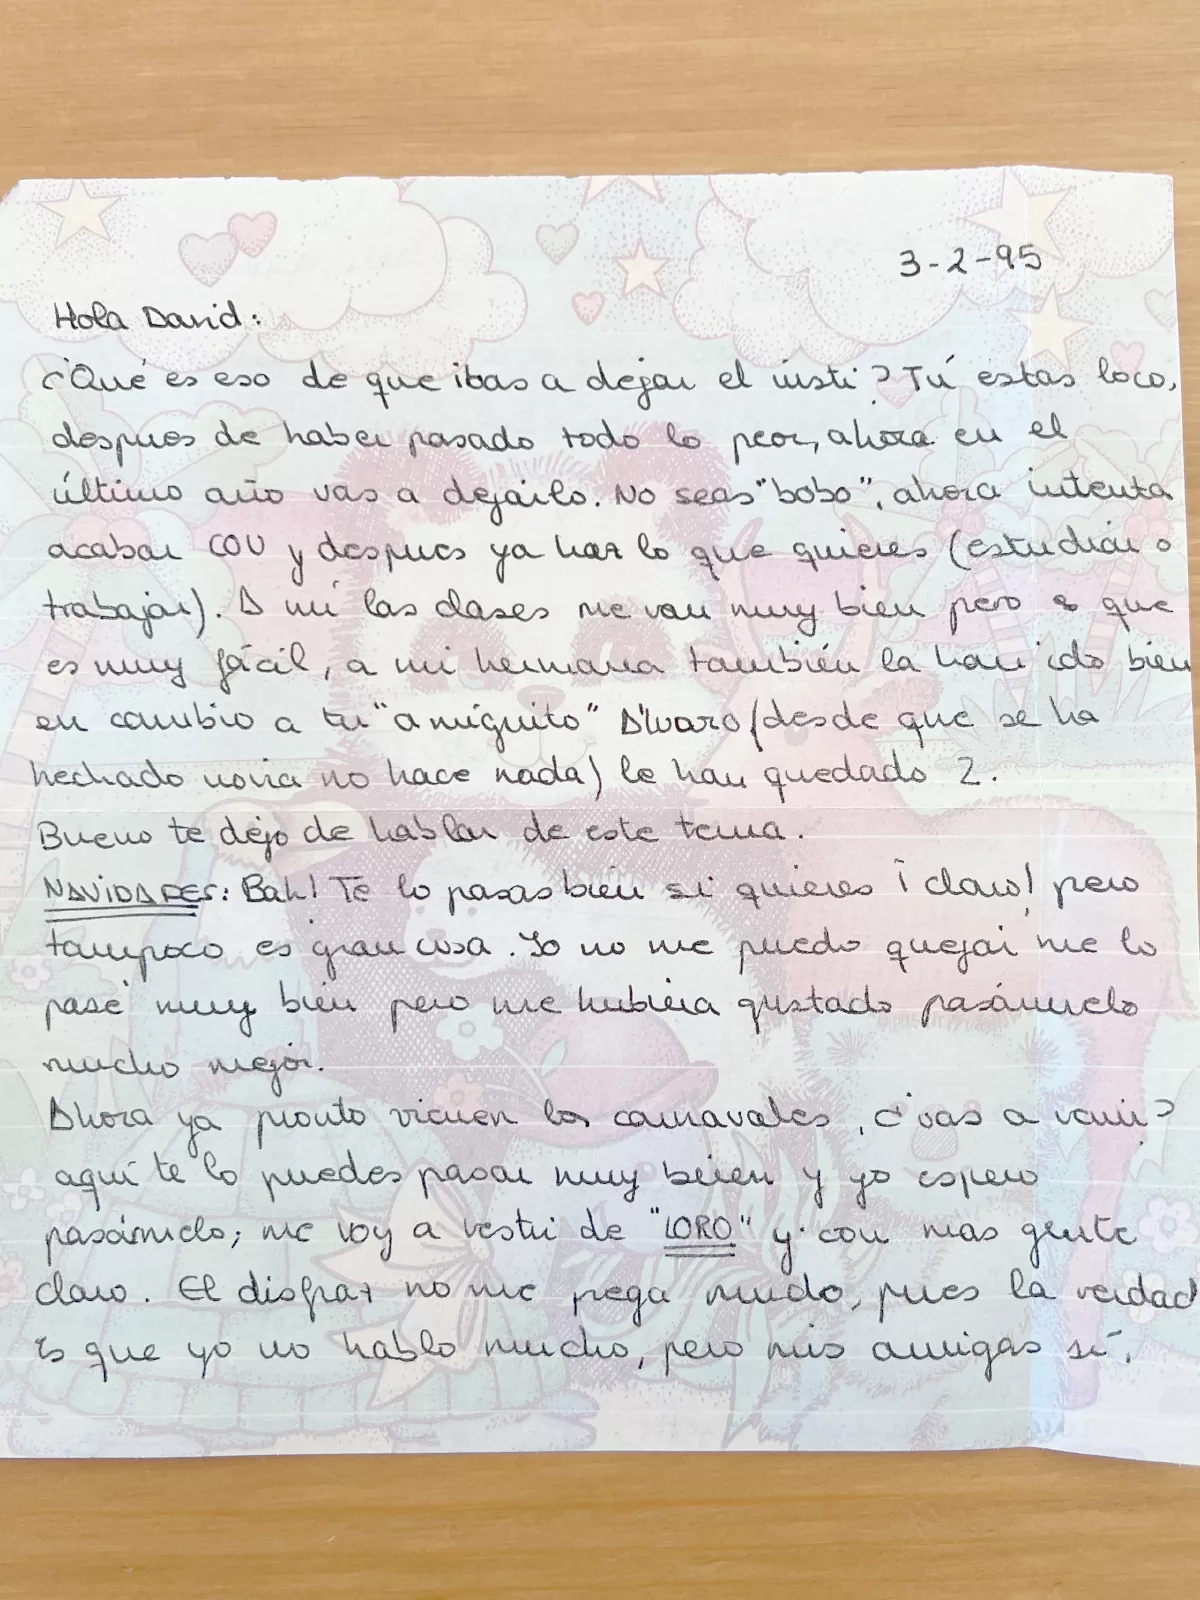 3-2-95
Hola David:
¿Qué es eso de que ibas a dejar el insti? Tú estas loco,
despues de haber pasado todo lo peor, ahora en el
último año vas a dejarlo. No seas "bobo", ahora intenta
acabar COU y despues ya haz lo que quieres (estudiar o
trabajar). A mi las clases me van muy bien pero es que
es muy fácil, a mi hermana también la han ido bien
en cambio a tu "amiguito" Álvaro (desde que se ha
hechado novia no hace nada) le han quedado 2.
Bueno te dejo de hablar de este tema.
NAVIDADES: Bah! Te lo pasas bien si quieres ¡claro! pero
tampoco es gran cosa. Yo no me puedo quejar me lo
pasé muy bien pero me hubiera gustado pasármelo
mucho mejor.
Ahora ya pronto vienen los carnavales, ¿vas a venir?
aquí te lo puedes pasar muy bien y yo espero
pasármelo; me voy a vestir de "LORO" y con mas gente
claro. El disfraz no me pega mucho, pues la verdad
es que yo no hablo mucho, pero mis amigas sí.